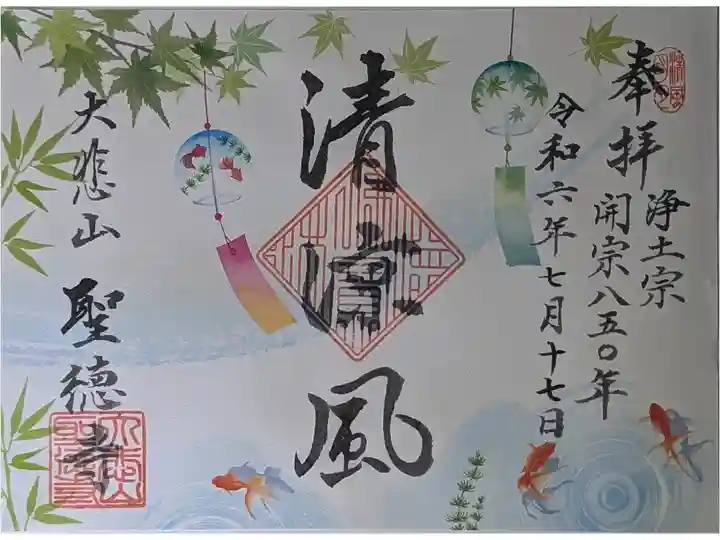 奉拝
浄土宗
開宗八五〇年
令和六年七月十七日
清風
大悲山 聖徳寺